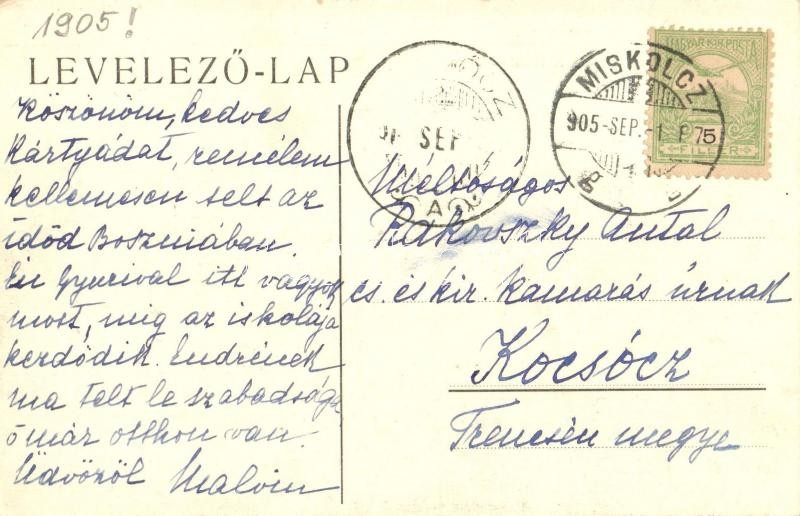 1905!
LEVELEZŐ-LAP
Köszönöm, kedves
kártyádat, remélem
kellemesen telt az
időd Boszniában.
Én Gyurival itt vagyok
most, mig az iskolája
kezdődik. Endrének
ma telt le szabadsága
ő már otthon van.
Üdvözöl Malvin
MAGYAR KIR. POSTA
75
FILLÉR
MISKOLCZ
905-SEP.-1
SEP
Méltóságos
Rakovszky Antal
cs. és kir. kamarás úrnak
Kocsócz
Trencsén megye